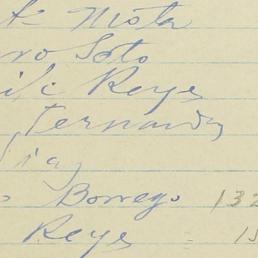 Mota
ro Soto
Reyes
Fernandez
Diaz
o Borrego 132
Reyes - 15